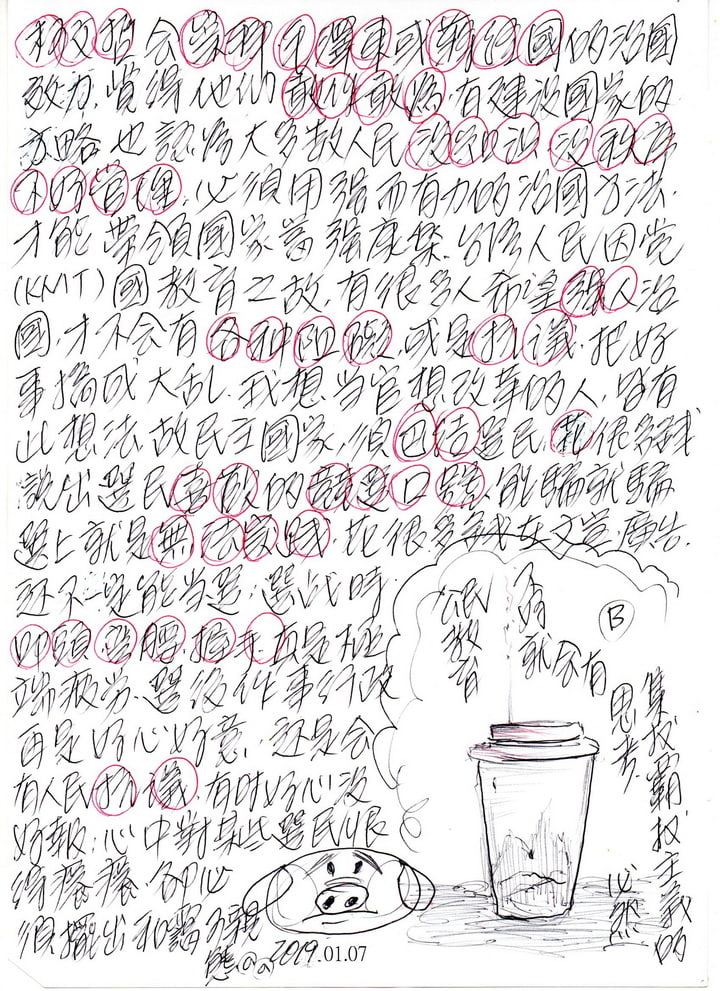 柯文哲会崇拜毛澤東或蔣經國的治國
效力.覺得他们敢作敢為.有建設國家的
方略也認為大多數人民沒知识 沒秩序
不好管理.必須用強而有力的治國方法.
才能帶領國家富強康樂.台灣人民因党
(KMT)國教育之故.有很多人希望強人治
國.才不会有各种阻礙.或是抗議.把好
事搞成大乱.我想当官想改革的人.皆有
此想法.故民主國家.須巴结選民.花很多錢
說出選民喜歡的競選口號.能騙就騙
選上就是無本家賊.花很多錢在文宣.廣告.
还不一定能当選.選战時.
叩頭 彎腰.握手.真是極
端疲勞.選後作事行政
再是好心好意.还是会
有人民抗議.有时好心沒
好報.心中對某些選民恨
得癢癢.卻必
須擺出和靄可親
態@@2019.01.07
B
公民
教育
不好
就会有
集权霸权主義的
思考.
必然